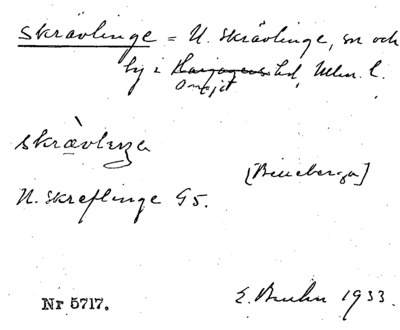 Skrävlinge = N. Skrävlinge, sn och
by i Harjagers hd, Mlm. l.
Onsjö
skrävlenga
[Billeberga]
N. Skreflinge G5.
Nr 5717.
E. Bruhn 1933.